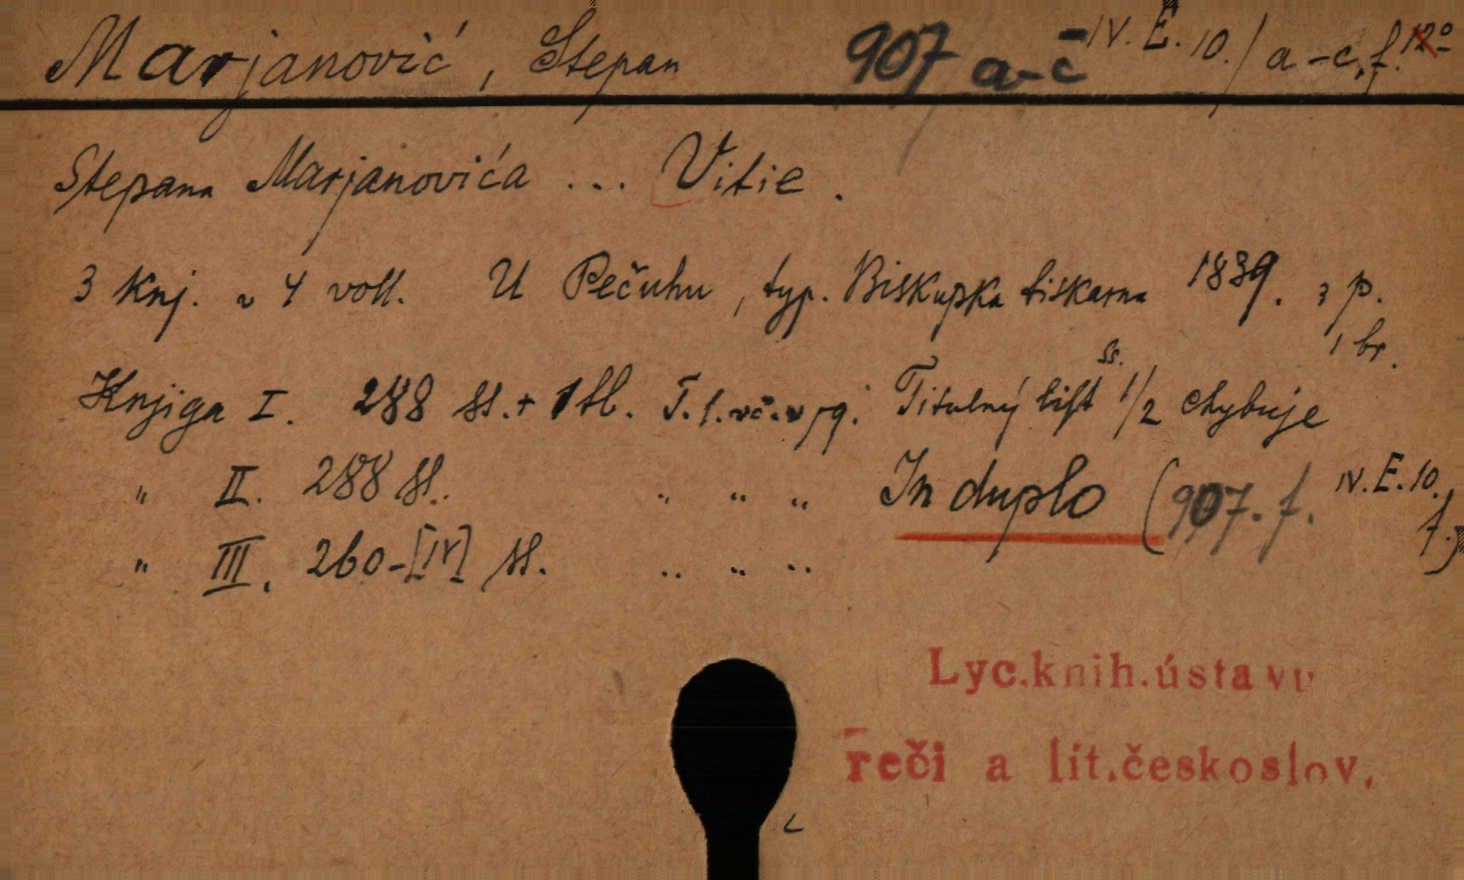 Marjanović, Stepan 907 a-č IV. E. 10./ a-c, f. 12°
Stepana Marjanovića ... Vitie.
3 knj. v 4 voll. U Pečuhu, typ. Biskupska tiskarna 1839. 3 p.
1 br.
Knjiga I. 288 ss. + 1 tl. T. l. vč. v pg. Titulný list ss. 1/2 chybuje
" II. 288 ss. " " " In duplo (907. f. IV. E. 10.
f.)
" III. 260-[IV] ss. " " "
Lyc.knih.ústavu
reči a lit.českoslov.